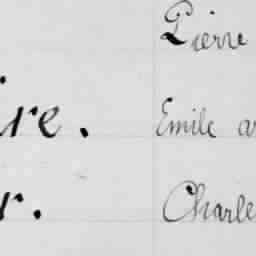 Pierre
ire. Emile ar
r. Charle